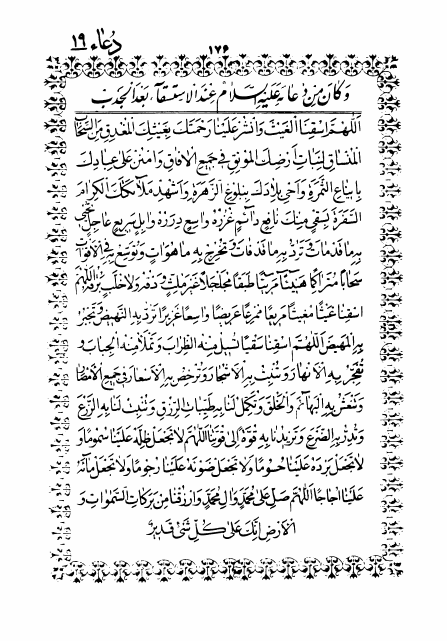 دُعاء ١٩
١٧۶
وَكَانَ مِنْ دُعَائِهِ عَلَيْهِ السَّلَامُ عِنْدَ الِاسْتِسْقَاءِ بَعْدَ الْجَدْبِ
اَللّٰهُمَّ اسْقِنَا الْغَيْثَ وَانْشُرْ عَلَيْنَا رَحْمَتَكَ بِغَيْثِكَ الْمُغْدِقِ مِنَ السَّحَابِ
الْمُنْسَاقِ لِنَبَاتِ اَرْضِكَ الْمُونِقِ فِي جَمِيعِ الْاٰفَاقِ وَامْنُنْ عَلٰى عِبَادِكَ
بِاِينَاعِ الثَّمَرَةِ وَاَحْيِ بِلَادَكَ بِبُلُوغِ الزَّهَرَةِ وَاَشْهِدْ مَلَآئِكَتَكَ الْكِرَامَ
السَّفَرَةَ بِسَقْيٍ مِنْكَ نَافِعٍ دَآئِمٍ غُزْرُهُ وَاسِعٍ دِرَرُهُ وَابِلٍ سَرِيعٍ عَاجِلٍ تُحْيِي
بِهِ مَا قَدْ مَاتَ وَتَرُدُّ بِهِ مَا قَدْ فَاتَ وَتُخْرِجُ بِهِ مَا هُوَ اٰتٍ وَتُوَسِّعُ بِهِ فِي الْاَقْوَاتِ
سَحَابًا مُتَرَاكِمًا هَنِيئًا مَرِيئًا طَبَقًا مُجَلْجَلًا غَيْرَ مُلِثٍّ وَدْقُهُ وَلَا خُلَّبٍ بَرْقُهُ اَللّٰهُمَّ
اسْقِنَا غَيْثًا مُغِيثًا مَرِيعًا مُمْرِعًا عَرِيضًا وَاسِعًا غَزِيرًا تَرُدُّ بِهِ النَّهِيضَ وَتَجْبُرُ
بِهِ الْمَهِيضَ اَللّٰهُمَّ اسْقِنَا سَقْيًا تُسِيلُ مِنْهُ الظِّرَابَ وَتَمْلَأُ مِنْهُ الْجِبَابَ وَ
تُفَجِّرُ بِهِ الْاَنْهَارَ وَتُنْبِتُ بِهِ الْاَشْجَارَ وَتُرْخِصُ بِهِ الْاَسْعَارَ فِي جَمِيعِ الْاَمْصَارِ
وَتَنْعَشُ بِهِ الْبَهَآئِمَ وَالْخَلْقَ وَتُكْمِلُ لَنَا بِهِ طَيِّبَاتِ الرِّزْقِ وَتُنْبِتُ لَنَا بِهِ الزَّرْعَ
وَتُدِرُّ بِهِ الضَّرْعَ وَتَزِيدُنَا بِهِ قُوَّةً اِلٰى قُوَّتِنَا اَللّٰهُمَّ لَا تَجْعَلْ ظِلَّهُ عَلَيْنَا سَمُومًا وَ
لَا تَجْعَلْ بَرْدَهُ عَلَيْنَا حُسُومًا وَلَا تَجْعَلْ صَوْبَهُ عَلَيْنَا رُجُومًا وَلَا تَجْعَلْ مَآئَهُ
عَلَيْنَا اُجَاجًا اَللّٰهُمَّ صَلِّ عَلٰى مُحَمَّدٍ وَاٰلِ مُحَمَّدٍ وَارْزُقْنَا مِنْ بَرَكَاتِ السَّمٰوَاتِ وَ
الْاَرْضِ اِنَّكَ عَلٰى كُلِّ شَيْءٍ قَدِيرٌ